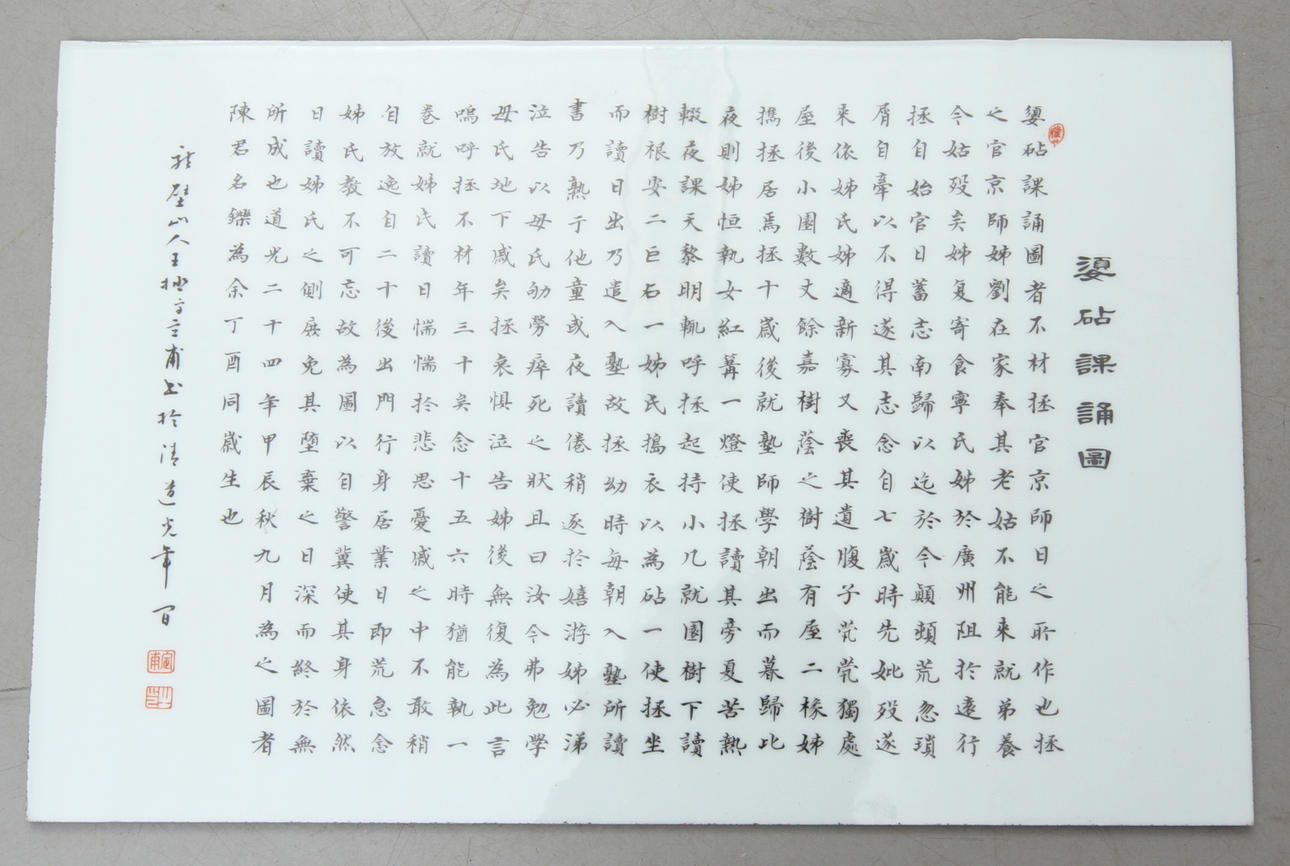 嬃砧課誦圖
嬃砧課誦圖者不材拯官京師日之所作也拯
之官京師姊劉在家奉其老姑不能來就弟養
今姑歿矣姊复寄食寧氏姊於廣州阻於遠行
拯自始官日蓄志南歸以迄於今顛頓荒忽瑣
屑自牽以不得遂其志念自七歲時先妣歿遂
來依姊氏姊適新寡又喪其遺腹子煢煢獨處
屋後小園數丈餘嘉樹蔭之樹蔭有屋二椽姊
攜拯居焉拯十歲後就塾師學朝出而暮歸比
夜則姊恒執女紅篝一燈使拯讀其旁夏苦熱
輟夜課天黎明輒呼拯起持小几就園樹下讀
樹根安二巨石一姊氏搗衣以為砧一使拯坐
而讀日出乃遣入塾故拯幼時每朝入塾所讀
書乃熟于他童或夜讀倦稍逐於嬉游姊必涕
泣告以母氏劬勞瘁死之狀且曰汝今弗勉學
母氏地下戚矣拯哀懼泣告姊後無復為此言
嗚呼拯不材年三十矣念十五六時猶能執一
卷就姊氏讀日惴惴於悲思憂戚之中不敢稍
自放逸自二十後出門行身居業日即荒怠念
姊氏教不可忘故為圖以自警冀使其身依然
日讀姊氏之側庶免其墮棄之日深而終於無
所成也道光二十四年甲辰秋九月為之圖者
陳君名鑠為余丁酉同歲生也
龍壁山人王拯字定甫書於清道光年間